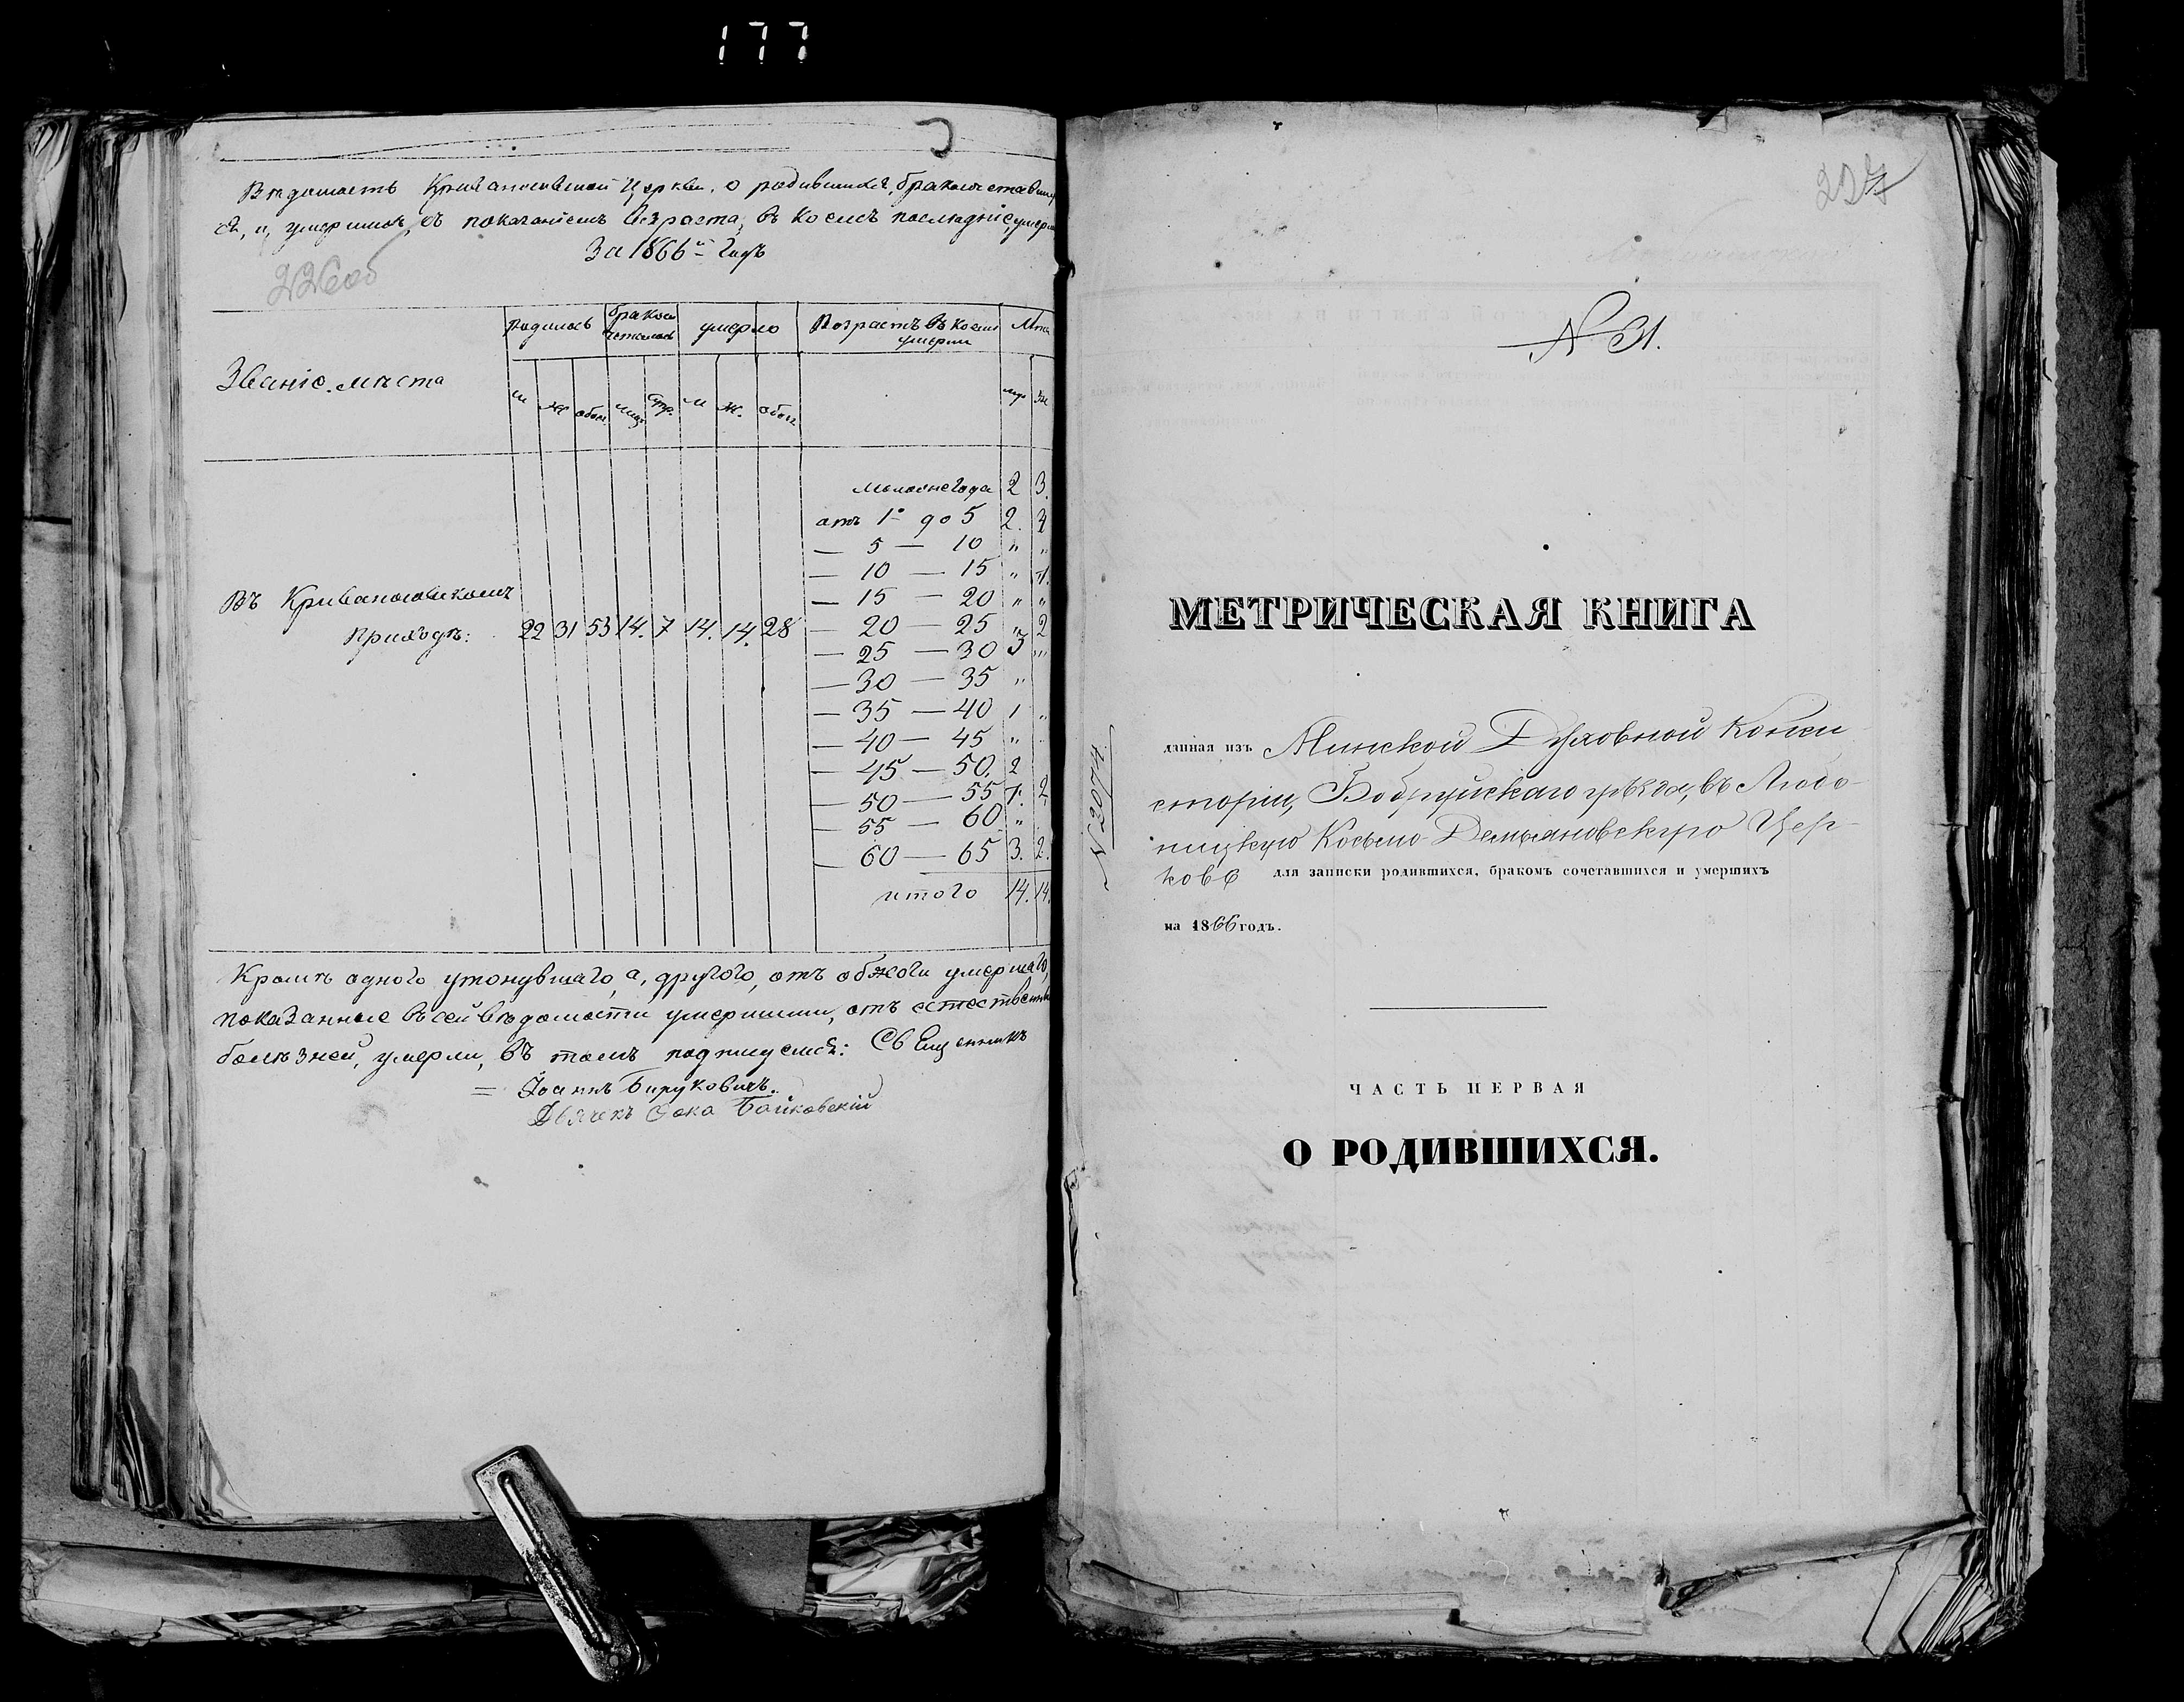 177
Вѣдомость Кривоносовской Церкви, о родившихся, бракосочетавших
ся, и, умершихъ, съ показаніемъ Возраста, въ коемъ послѣдніе умерли
За 1866й Годъ
226об
Званіе мѣста
родилось
бракосочеталось
умерло
Возрастъ въ коемъ умерли
м ж обоег. лицъ супр. м ж. обоег. муж
младенегода 2 3.
отъ 1го до 5 2. 2
— 5 — 10 " "
— 10 — 15 " 1.
— 15 — 20 " "
— 20 — 25 " 2
— 25 — 30 3 "
— 30 — 35 "
— 35 — 40 1 "
— 40 — 45 "
— 45 — 50. 2
— 50 — 55 1. 2
— 55 — 60 "
— 60 — 65 3. 2.
итого 14. 14.
Въ Кривоносовскомъ
Приходѣ: 22 31 53 14. 7 14. 14. 28
Кромѣ одного утонувшаго, а, другого, отъ обжоги умершаго,
показанные въ сей вѣдомости умершими, отъ естествен
болѣзней, умерли, въ томъ подписуемся: Священникъ
= Іоаннъ Бируковичъ.
Дьячекъ Ѳока Байковскій
227
N 31.
МЕТРИЧЕСКАЯ КНИГА
данная изъ Минской Духовной Конси
сторіи, Бобруйскаго уѣзда, въ Любо-
ницкую Косьмо Демьяновскую Цер-
ковь для записки родившихся, бракомъ сочетавшихся и умершихъ
на 1866 годъ.
ЧАСТЬ ПЕРВАЯ
О РОДИВШИХСЯ.
N 2074